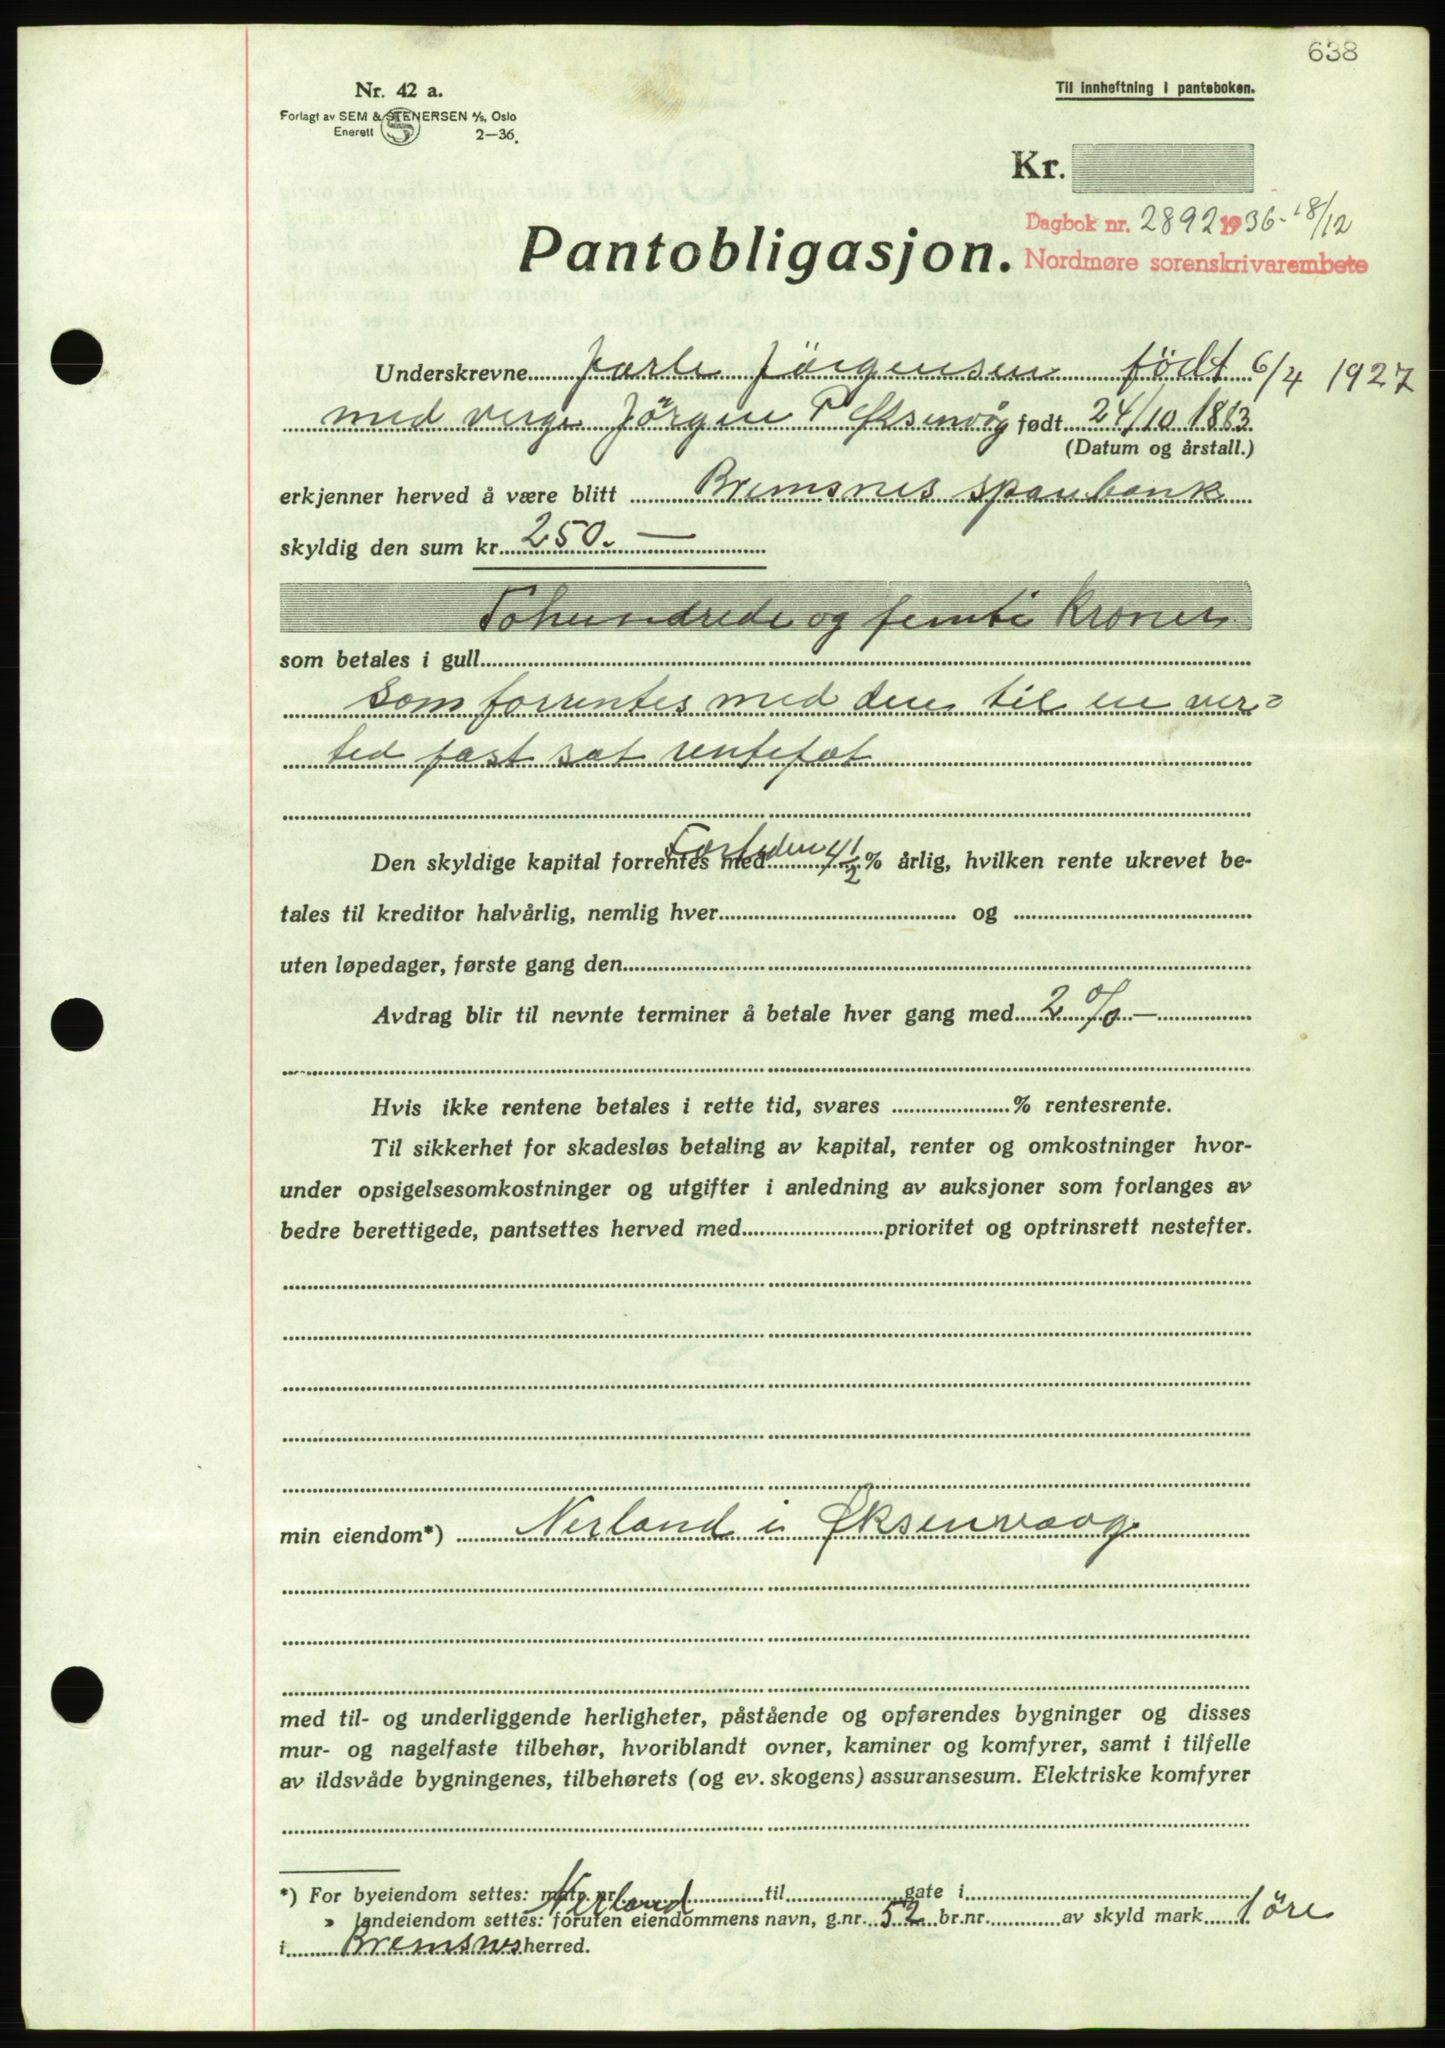 638
Nr. 42 a.
Til innheftning i panteboken.
Forlagt av SEM & STENERSEN A/S, Oslo
Enerett 2—36.
Kr.
Dagbok nr. 2892 1936 - 18/12
Nordmøre sorenskrivarembete
Pantobligasjon.
Underskrevne Jarle Jörgensen født 6/4 1927
med verge Jörgen P Øksenvåg født 24/10 1883
(Datum og årstall.)
erkjenner herved å være blitt Bremsnes sparebank
skyldig den sum kr. 250. —
Tohundrede og femti Kroner
som betales i gull
som forrentes med den til en ver=
tid fast sat rentefot
Fortiden
Den skyldige kapital forrentes med 4 1/2 % årlig, hvilken rente ukrevet be-
tales til kreditor halvårlig, nemlig hver og
uten løpedager, første gang den
Avdrag blir til nevnte terminer å betale hver gang med 2 % —
Hvis ikke rentene betales i rette tid, svares % rentesrente.
Til sikkerhet for skadesløs betaling av kapital, renter og omkostninger hvor-
under opsigelsesomkostninger og utgifter i anledning av auksjoner som forlanges av
bedre berettigede, pantsettes herved med prioritet og optrinsrett nestefter.
min eiendom*) Nerland i Øksenvaag
med til- og underliggende herligheter, påstående og opførendes bygninger og disses
mur- og nagelfaste tilbehør, hvoriblandt ovner, kaminer og komfyrer, samt i tilfelle
av ildsvåde bygningenes, tilbehørets (og ev. skogens) assuransesum. Elektriske komfyrer
*) For byeiendom settes: matr. nr. til gate i
Nerland
» landeiendom settes: foruten eiendommens navn, g.nr. 52 br.nr. av skyld mark 1 öre
i Bremsnes herred.